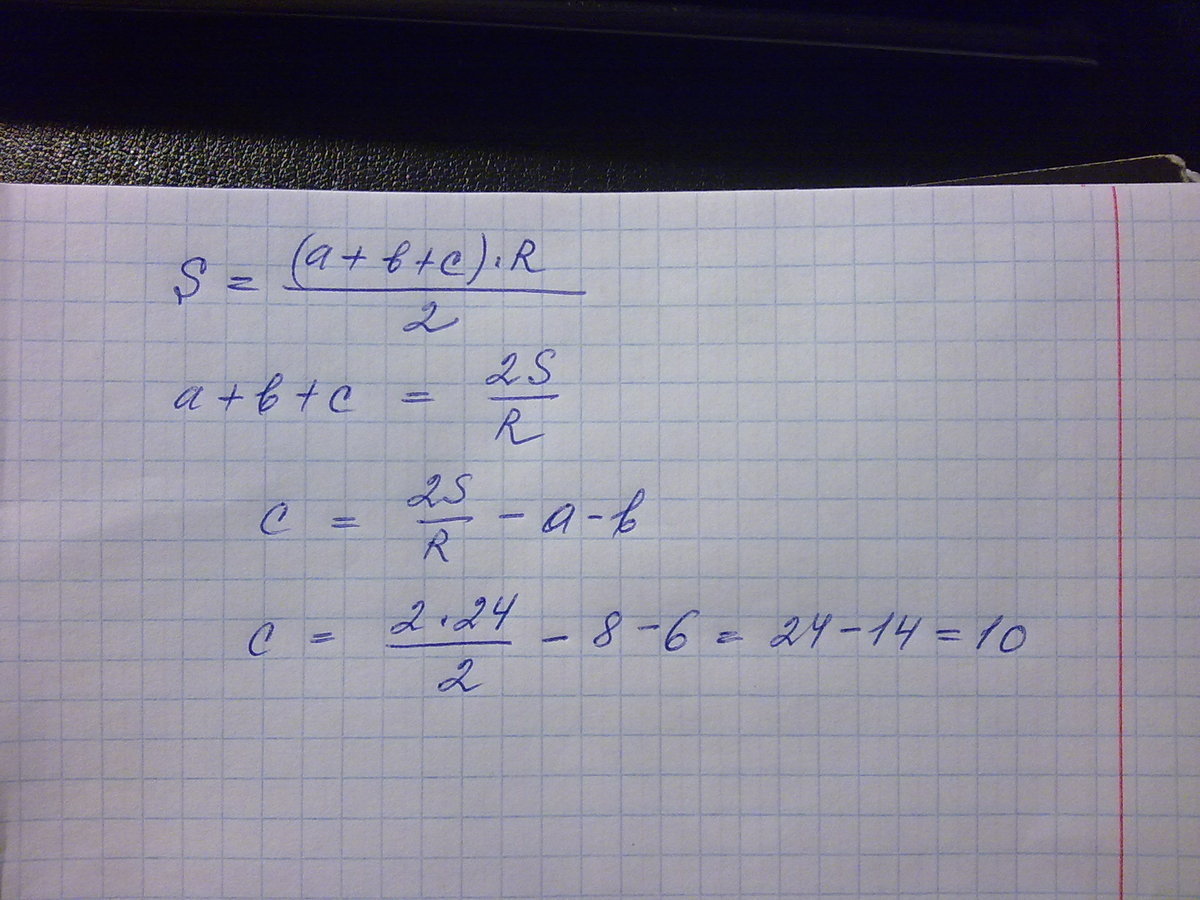 S = (a + b + c) · R / 2
a + b + c = 2S / R
c = 2S / R - a - b
c = 2 · 24 / 2 - 8 - 6 = 24 - 14 = 10